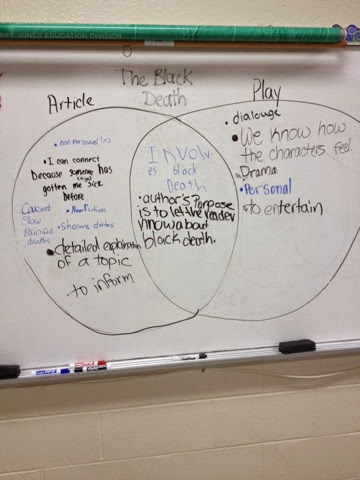 JONES EDUCATION DIVISION
The Black
Death
Article
Play
• I can connect
because someone has
gotten me sick
before
Caused
slow
Painful
death
• Nonfiction
• shows dates
• detailed explanation
of a topic
• to inform
Involv
es black
Death
• author's Purpose
is to let the reader
know about
black death.
• dialouge
• We know how
the characters feel.
• Drama
• Personal
• to entertain